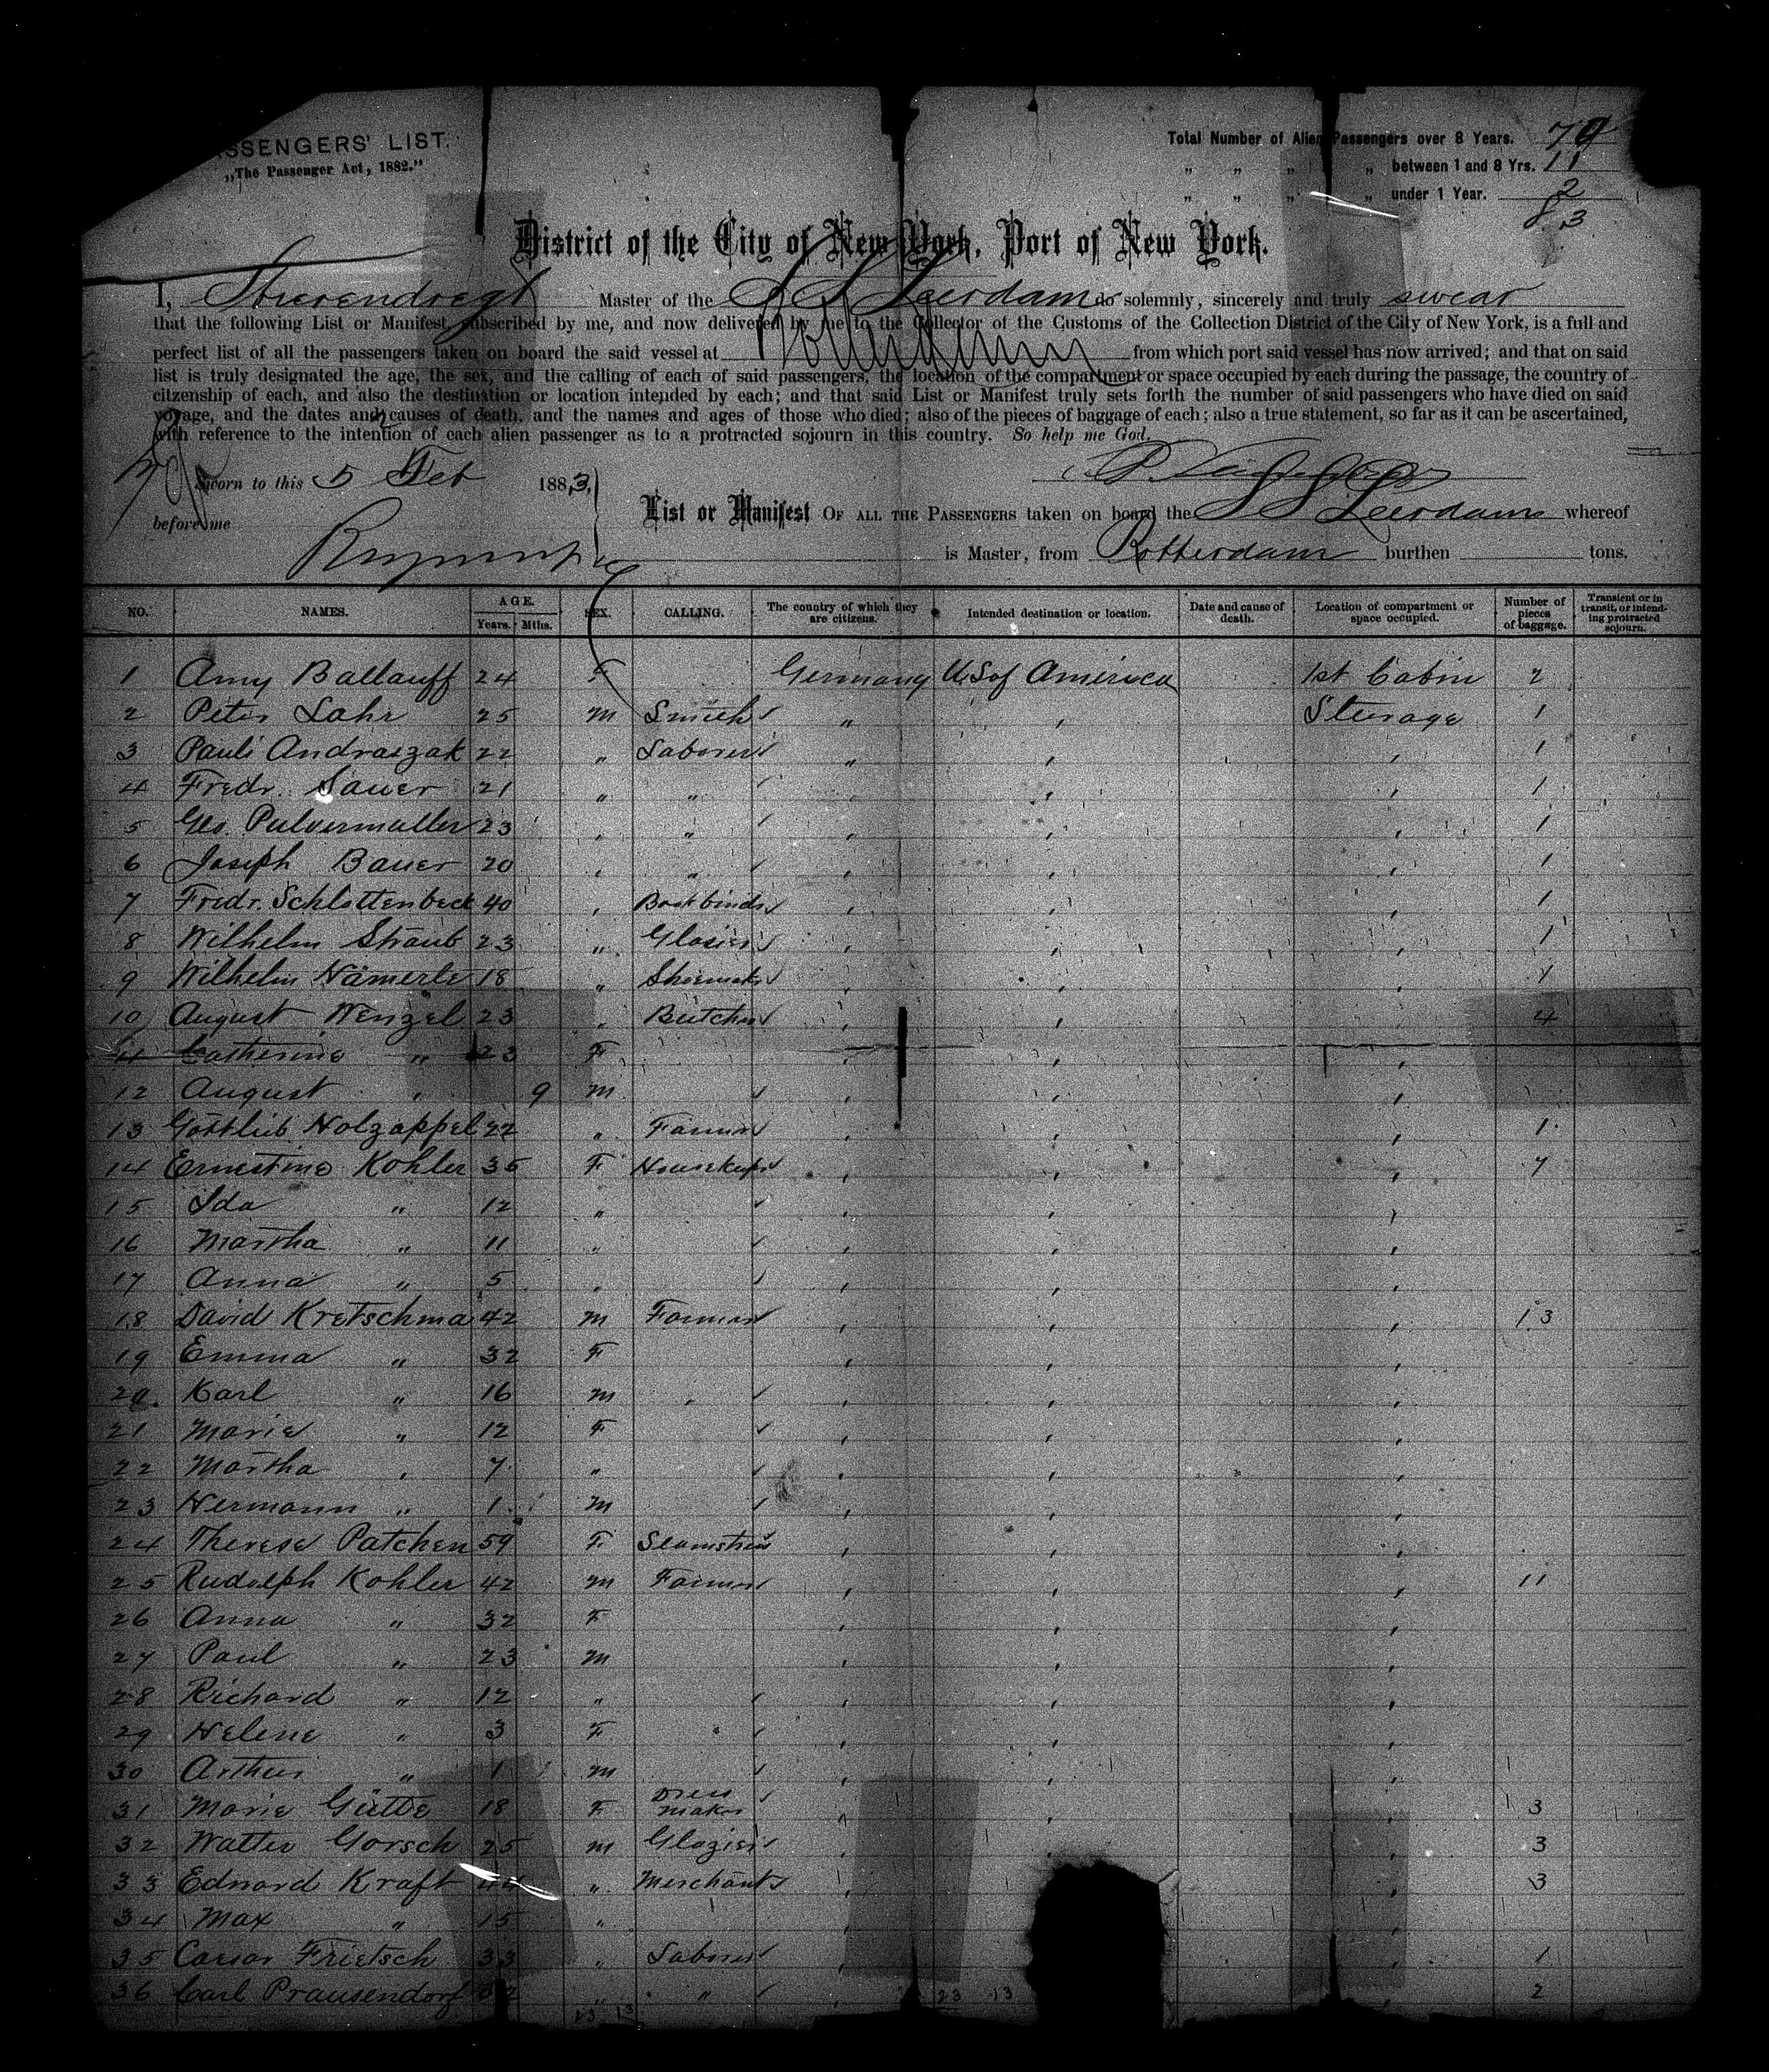 SSENGERS' LIST.
„The Passenger Act, 1882."
Total Number of Alien Passengers over 8 Years. 70
„ „ „ „ between 1 and 8 Yrs. 11
„ „ „ „ under 1 Year. 2
83
District of the City of New York, Port of New York.
I, Master of the SS Leerdam do solemnly, sincerely and truly swear
that the following List or Manifest, subscribed by me, and now delivered by me to the Collector of the Customs of the Collection District of the City of New York, is a full and
perfect list of all the passengers taken on board the said vessel at Rotterdam from which port said vessel has now arrived; and that on said
list is truly designated the age, the sex, and the calling of each of said passengers, the location of the compartment or space occupied by each during the passage, the country of
citzenship of each, and also the destination or location intended by each; and that said List or Manifest truly sets forth the number of said passengers who have died on said
voyage, and the dates and causes of death, and the names and ages of those who died; also of the pieces of baggage of each; also a true statement, so far as it can be ascertained,
with reference to the intention of each alien passenger as to a protracted sojourn in this country. So help me God.
Sworn to this 5 Feb 1883,
before me
List or Manifest OF ALL THE PASSENGERS taken on board the SS Leerdam whereof
is Master, from Rotterdam burthen tons.
NO. NAMES. AGE. Years. Mths. SEX. CALLING. The country of which they are citizens. Intended destination or location. Date and cause of death. Location of compartment or space occupied. Number of pieces of baggage. Transient or in transit, or intending protracted sojourn.
1 Amy Ballauff 24 F Germany U.S of America 1st Cabin 2
2 Peter Lahr 25 M Smith „ , Steerage 1
3 Pauls Andraszak 22 „ Laborer „ , , 1
4 Fredr. Sauer 21 „ „ , , , 1
5 Geo. Pulvermuller 23 , „ , , , 1
6 Joseph Bauer 20 , „ , , , 1
7 Fredr. Schlottenbeck 40 , Bookbinder , , , 1
8 Wilhelm Straub 23 „ Glasier , , , 1
9 Wilhelm Hämerle 18 „ Shoemaker , , , 1
10 August Wenzel 23 „ Butcher , , , 4
11 Catherine „ 23 F , , ,
12 August , 9 M , , ,
13 Gottlieb Holzappel 22 „ Farmer , , , 1
14 Ernestine Kohler 35 F Housekeeper , , , 7
15 Ida „ 12 „ , , ,
16 Martha „ 11 „ , , ,
17 Anna „ 5 „ , , ,
18 David Kretschma 42 M Farmer , , , 13
19 Emma „ 32 F , , ,
20. Karl „ 16 M , , , ,
21 Marie „ 12 F , , ,
22 Martha , 7 „ , , ,
23 Hermann „ 1 M , , ,
24 Therese Patchen 59 F Seamstress , , ,
25 Rudolph Kohler 42 M Farmer , , , 11
26 Anna „ 32 F , , ,
27 Paul „ 23 M , , ,
28 Richard „ 12 „ , , ,
29 Helene „ 3 F , , ,
30 Arthur „ 1 M , , ,
31 Marie Gütte 18 F Dress maker , , , 3
32 Walter Gorsch 25 M Glazier , , , 3
33 Edward Kraft 44 „ Merchant , , 3
34 Max „ 15 „ , ,
35 Caesar Frietsch 33 „ Laborer , , 1
36 Carl Prausendorf 32 „ „ , , 2
23 13 23 13